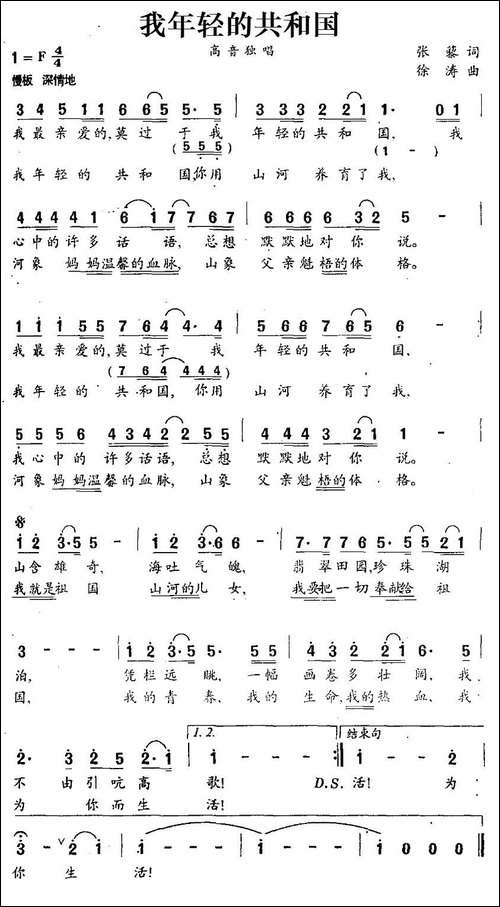 我年轻的共和国
1=F 4/4 高音独唱 张藜词
慢板 深情地 徐涛曲
3 4 5 1 1 6 6 5 5· 5 | 3 3 3 2 2 1 1· 0 1 |
我最亲爱的,莫过于我 年轻的共和国, 我
(5 5 5) (1 - )
我年轻的 共和国,你用 山河 养育了我,
4 4 4 4 1 6 1 7 7 6 7 | 6 6 6 6 3 2 5 - |
心中的许多话语,总想 默默地对你说。
河象妈妈温馨的血脉,山象 父亲魁梧的体格。
1 1 1 5 5 7 6 4 4· 4 | 5 6 6 7 6 5 6 - |
我最亲爱的,莫过于我 年轻的共和国,
(7 6 4 4 4 4)
我年轻的 共和国,你用 山河 养育了我,
5 5 5 6 4 3 4 2 2 5 5 | 4 4 4 3 2 1 1 - |
我心中的许多话语,总想 默默地对你说。
河象妈妈温馨的血脉,山象 父亲魁梧的体格。
1 2 3·5 5 - | 1 2 3·6 6 - | 7· 7 7 6 5 5 5 2 1 |
山含雄奇, 海吐气魄, 翡翠田园,珍珠湖
我就是祖国 山河的儿女, 我要把一切奉献给祖
6 - - - | 1 2 3·5 5 5 5 | 4 3 2 2 2 1 6· 5 |
泊, 凭栏远眺,一幅 画卷多壮阔,我
国, 我的青春,我的 生命,我的热血,我
2· 3 2 5 2·1 | 1 - - - :‖ 1 - - 2 |
1.2. 结束句
不由引吭高 歌! D.S.活! 为
为 你而生 活!
3 - 2 1 | 1 - - - | 1 - - - | 1 0 0 0 ‖
你 生 活!